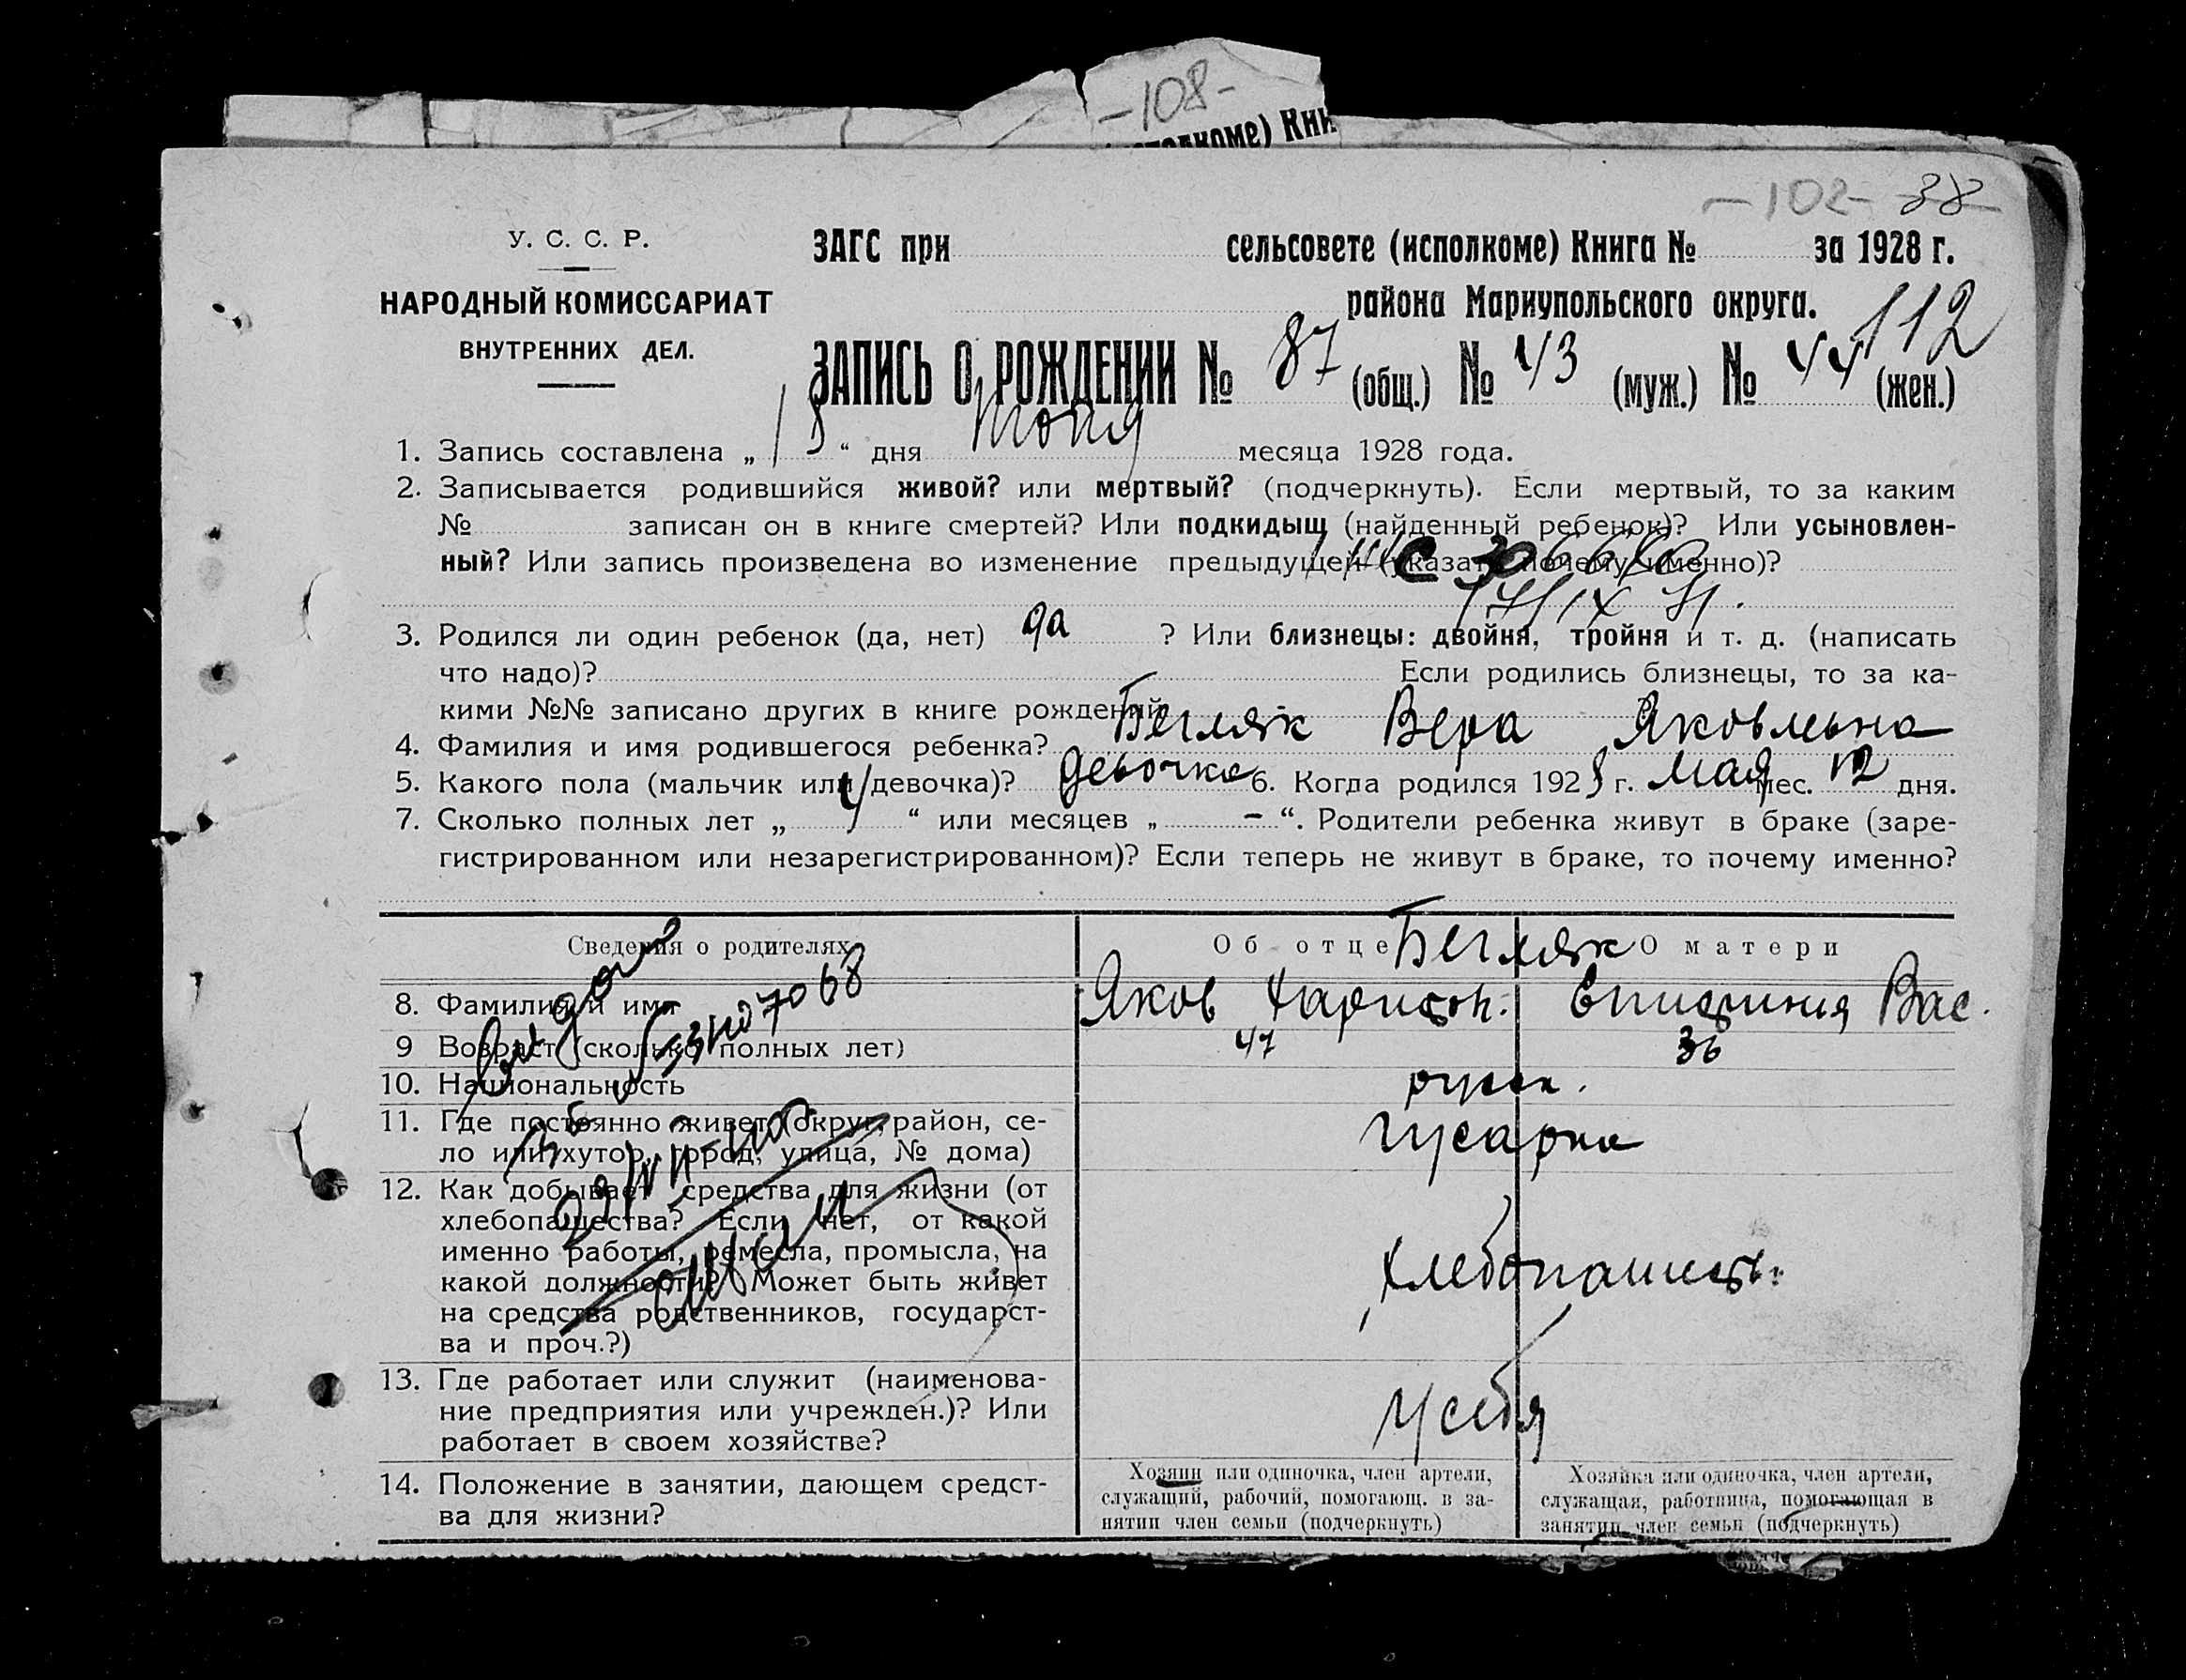 -108-
исполкоме) Кни
-102- 38
У. С. С. Р.
ЗАГС при сельсовете (исполкоме) Книга № за 1928 г.
НАРОДНЫЙ КОМИССАРИАТ
района Мариупольского округа.
112
ВНУТРЕННИХ ДЕЛ.
ЗАПИСЬ О РОЖДЕНИИ № 87 (общ.) № 43 (муж.) № 44 (жен.)
1. Запись составлена „ 18 “ дня месяца 1928 года.
2. Записывается родившийся живой? или мертвый? (подчеркнуть). Если мертвый, то за каким
№ записан он в книге смертей? Или подкидыш (найденный ребенок)? Или усыновлен-
ный? Или запись произведена во изменение предыдущей (указать почему именно)?
3. Родился ли один ребенок (да, нет) да ? Или близнецы: двойня, тройня и т. д. (написать
что надо)? Если родились близнецы, то за ка-
кими №№ записано других в книге рождений
4. Фамилия и имя родившегося ребенка? Бегляк Вера Яковлевна
5. Какого пола (мальчик или девочка)? девочка 6. Когда родился 1928 г. мая мес. 12 дня.
7. Сколько полных лет „ “ или месяцев „ - “. Родители ребенка живут в браке (заре-
гистрированном или незарегистрированном)? Если теперь не живут в браке, то почему именно?
Сведения о родителях Об отце Бегляк О матери
8. Фамилия и имя Яков Харитон. Епистиния Вас.
9 Возраст (сколько полных лет) 47 36
10. Национальность русск.
11. Где постоянно живет (округ, район, се-
ло или хутор, город, улица, № дома) Гусарка
12. Как добывает средства для жизни (от
хлебопашества? Если нет, от какой
именно работы, ремесла, промысла, на
какой должности? Может быть живет
на средства родственников, государст-
ва и проч.?)
хлебопашеств.
13. Где работает или служит (наименова-
ние предприятия или учрежден.)? Или
работает в своем хозяйстве?
у себя
14. Положение в занятии, дающем средст-
ва для жизни?
Хозяин или одиночка, член артели,
служащий, рабочий, помогающ. в за-
нятии член семьи (подчеркнуть)
Хозяйка или одиночка, член артели,
служащая, работница, помогающая в
занятии член семьи (подчеркнуть)